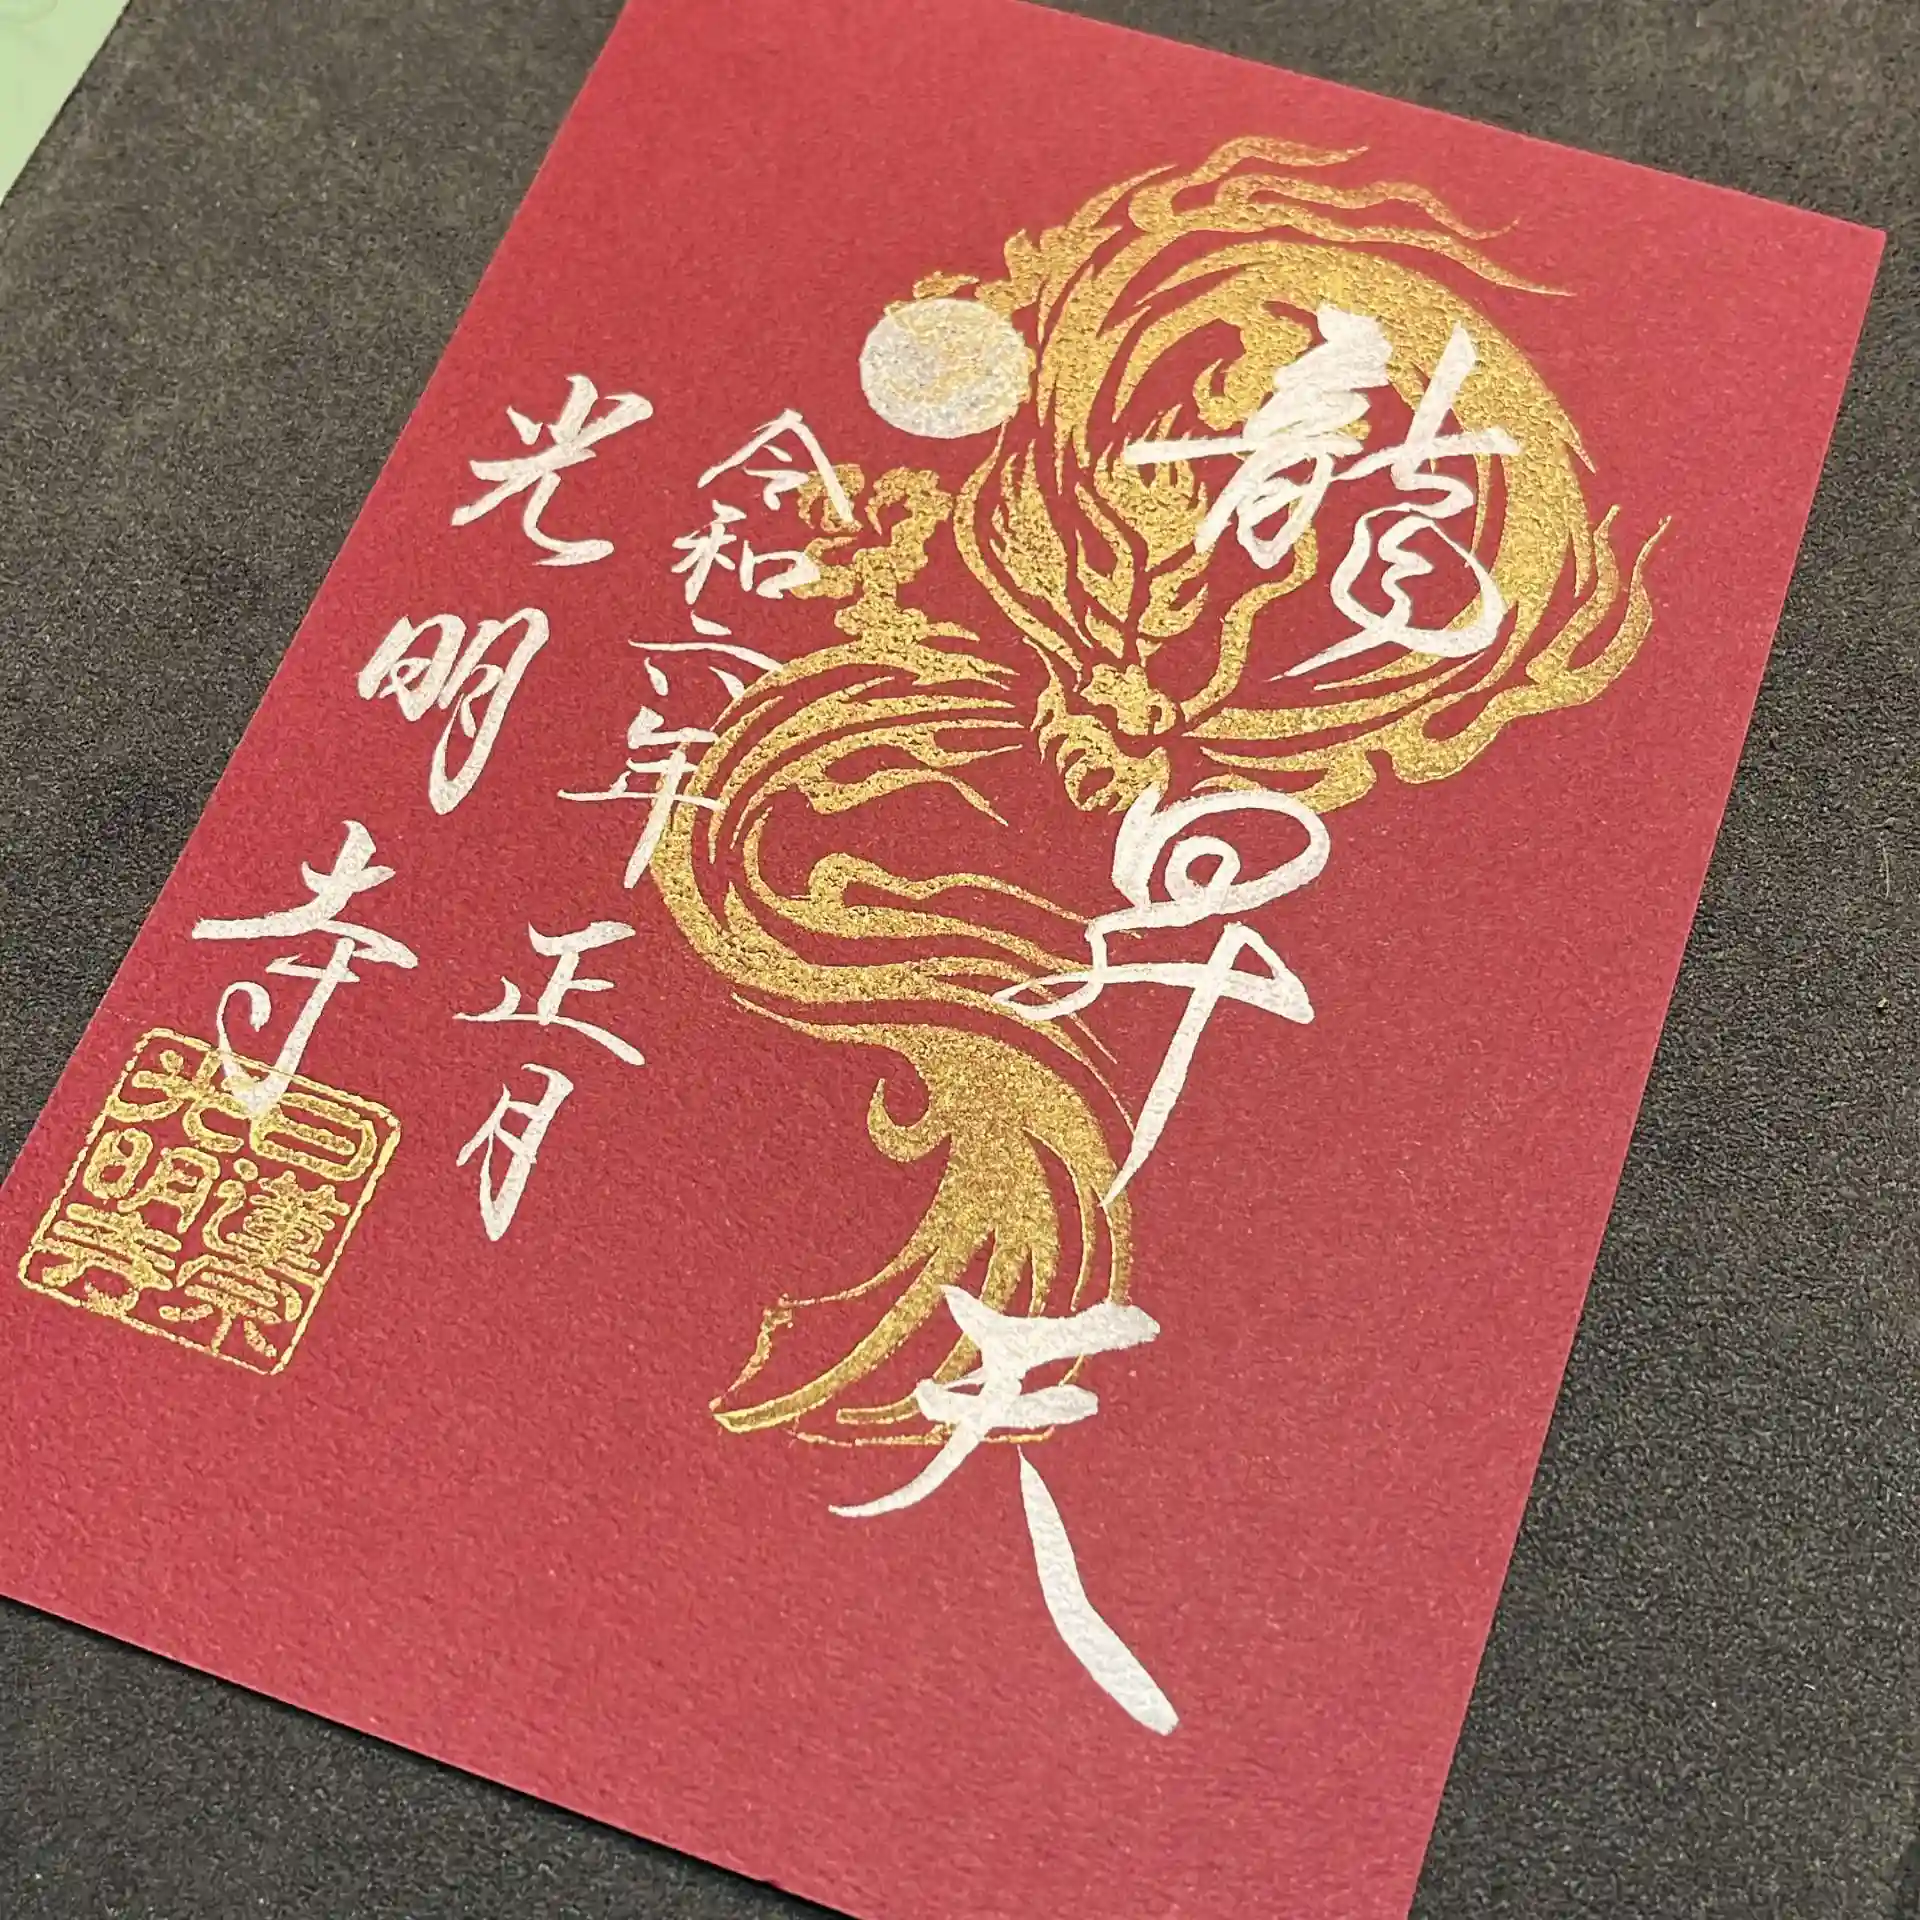 龍昇天
令和六年正月
光明寺
日蓮宗
光明寺